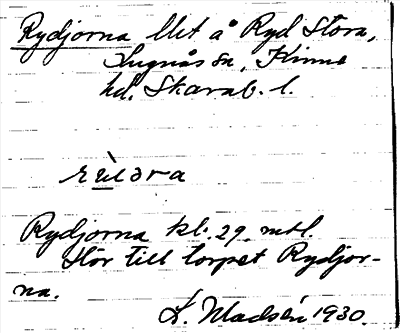 Rydjorna llst å Ryd Stora,
Lugnås sn, Kinne
hd. Skarab. l.
Rydjorna kl. 29. mtl.
Hör till torpet Rydjor-
na.
K. Madsén 1930.